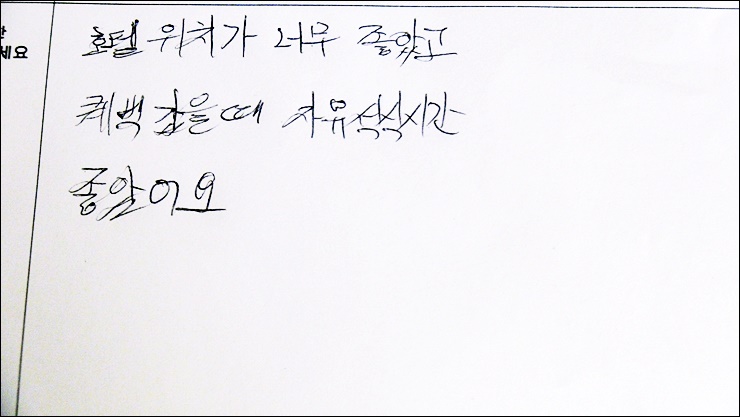 호텔 위치가 너무 좋았고
퀘벡 갔을때 자유식식시간
좋았어요
세요